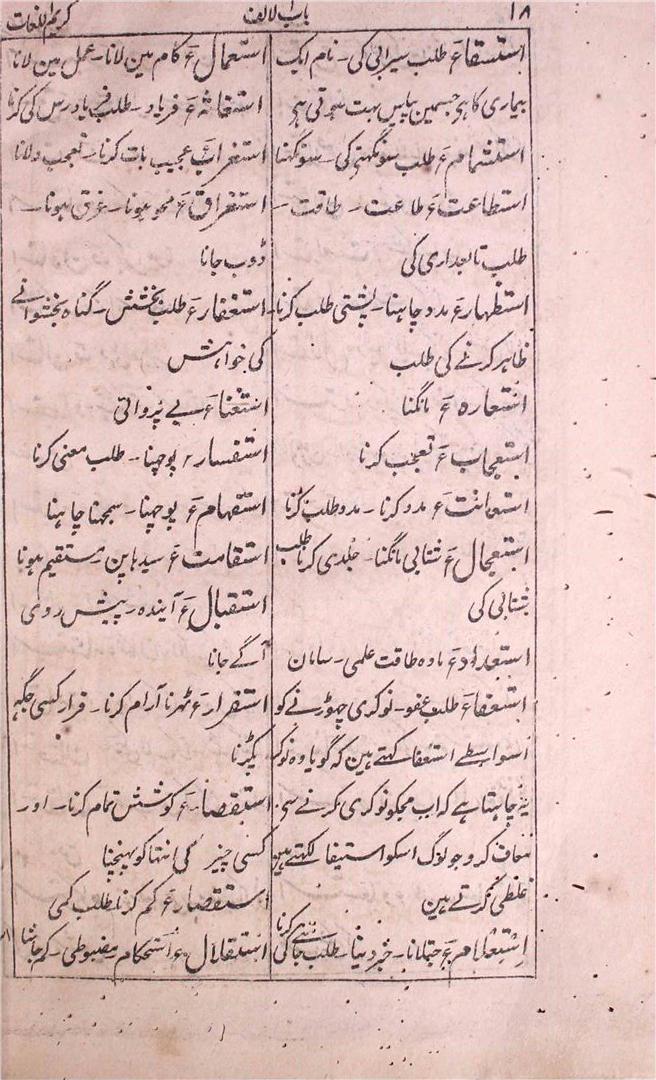 ۱۸
باب الالف
کریم اللغات
استسقاء ع طلب سیرابی کی۔ نام ایک
بیماری کا ہی جسمین پیاس بہت ہوتی ہی
استشمام ع طلب سونگہنی کی۔ سونگہنا
استطاعت ع طاعت۔ طاقت۔
طلب تابعداری کی
استظہار ع مدد چاہنا۔ پشتی طلب کرنا۔
ظاہر کرنے کی طلب
استعارہ ع مانگنا
استعجاب ع تعجب کرنا
استعانت ع مدد کرنا۔ مدد طلب کرنا
استعجال ع شتابی مانگنا۔ جلدی کرنا طلب
شتابی کی
استعداد ع مادہ طاقت علمی۔ سامان
استعفاء ع طلب عفو۔ نوکری چہوڑنے کو
اسواسطے استعفا کہتے ہین کہ گویا وہ نوکر
یہ چاہتا ہے کہ اب مجکو نوکری کرنے سی
معاف کرو جو لوگ اسکو استیفا لکہتے ہین
غلطی کرتے ہین
استعلام ع جتلانا۔ خبر دینا۔ طلب کرنا
استعمال ع کام مین لانا۔ عمل مین لانا
استغاثہ ع فریاد۔ طلب فریاد رس کی کرنا
استغراب ع عجیب بات کرنا۔ تعجب دلانا
استغراق ع محو ہونا۔ غرق ہونا۔
ڈوب جانا
استغفار ع طلب بخشش۔ گناہ بخشوانے
کی خواہش
استغناء ع بے پروائی
استفسار ع پوچہنا۔ طلب معنی کرنا
استفہام ع پوچہنا۔ سمجہنا چاہنا
استقامت ع سیدہاپن۔ مستقیم ہونا
استقبال ع آیندہ۔ پیش روی
آگے جانا
استقرار ع ٹہرنا آرام کرنا۔ قرار کسی جگہ
پکڑنا
استقصاء ع کوشش تمام کرنا۔ اور
کسی چیز کی انتہا کو پہنچنا
استقصار ع کم کرنا طلب کمی
استقلال ع استحکام مضبوطی۔